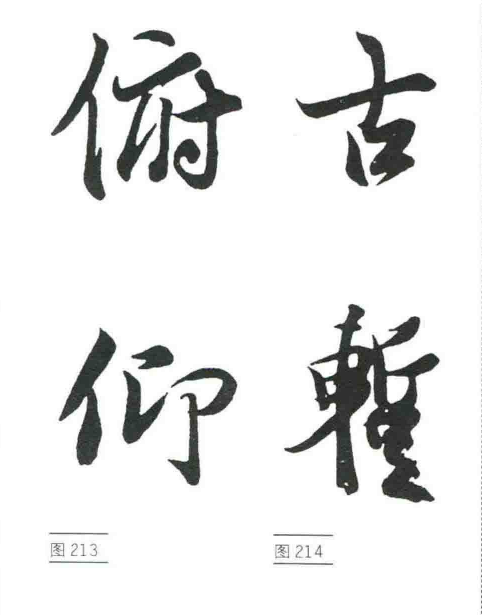 俯
仰
图213
古
暫
图214